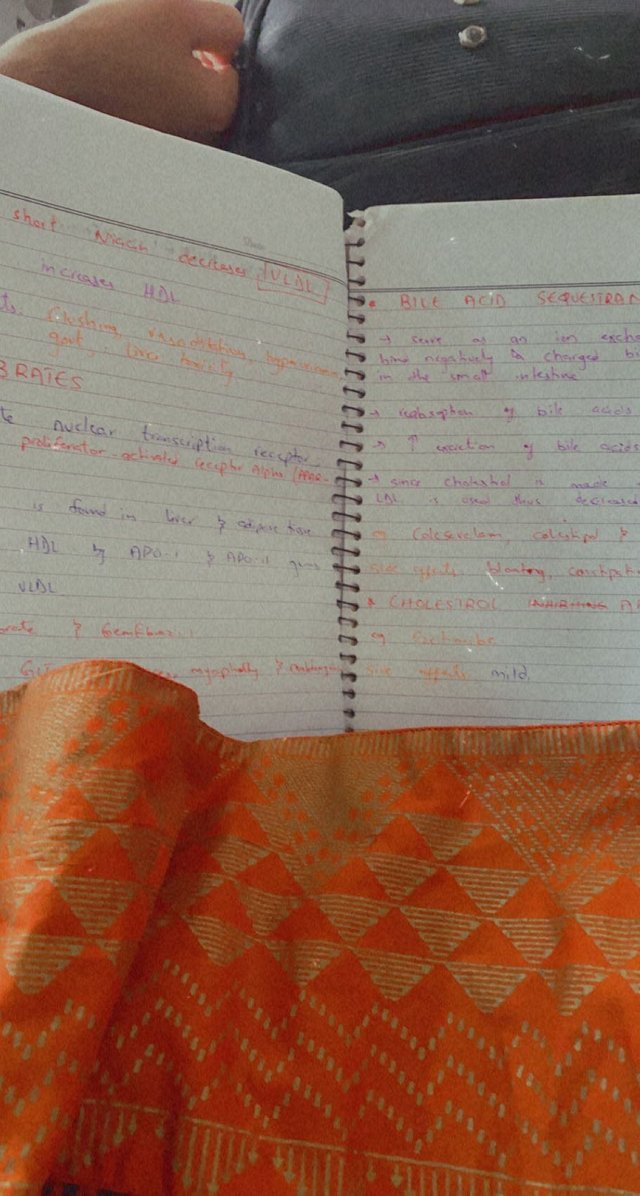 short Niacin decreases VLDL
increases HDL
flushing, vasodilation,
gout, liver toxicity
BRATES
nuclear transcription receptor
proliferator-activated receptor Alpha (PPAR-
is found in liver & adipose tissue
HDL by APO-I & APO-II genes
VLDL
& Gemfibrozil
myopathy &
• BILE ACID SEQUESTRAN
→ serve as an ion excha
bind negatively charged bi
in the small intestine
→ reabsorption of bile acids
→ ↑ excretion of bile acids
→ since cholesterol is made
LDL is used thus decreased
eg Colesevelam, colestipol &
side effects bloating, constipati
* CHOLESTROL
eg Ezetimibe
side effects mild.